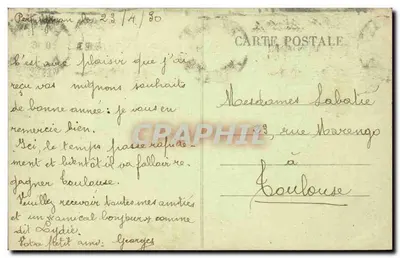 22/4/30
CARTE POSTALE
C'est avec plaisir que j'ai
reçu vos mignons souhaits
de bonne année : je vous en
remercie bien.
Ici, le temps passe rapide-
ment et bientôt il va falloir re-
gagner Toulouse.
Veuillez recevoir toutes mes amitiés
et un amical bonjour comme
dit Lydie.
Votre petit ami : Georges
Mesdames Labatié
rue Marengo
à
Toulouse
CPAPHIL